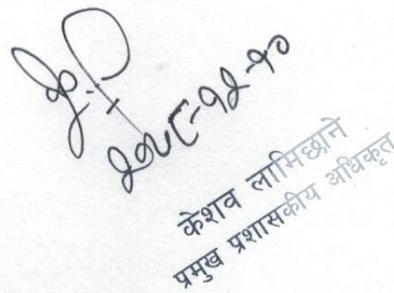 २०७८-१२-१०
केशव लामिछाने
प्रमुख प्रशासकीय अधिकृत